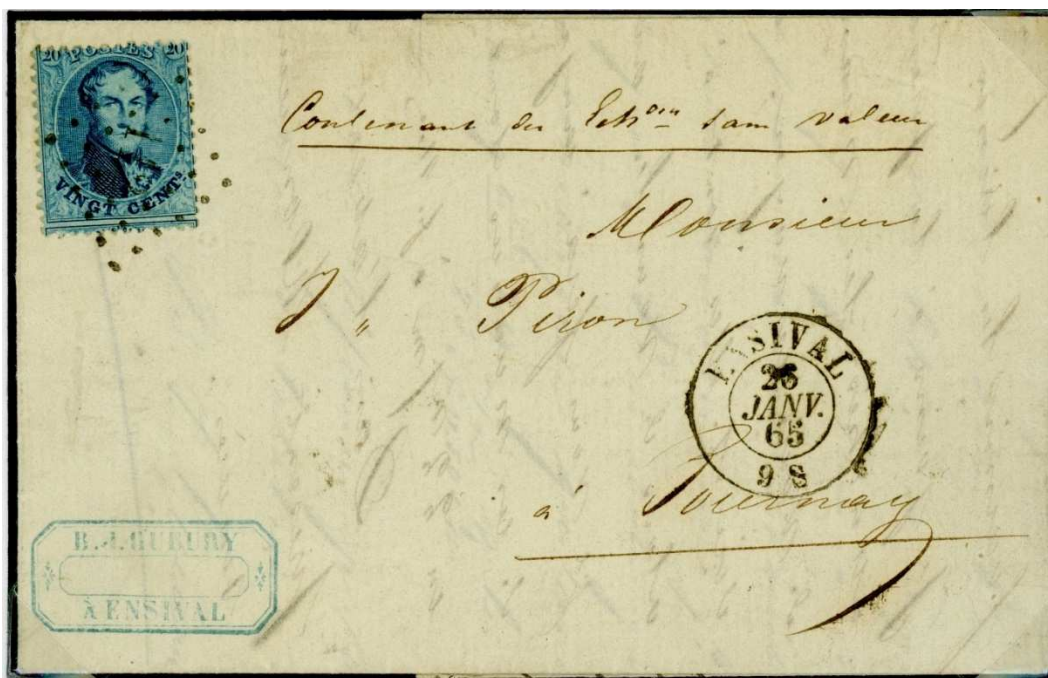 20 POSTES 20
VINGT CENTS
Contenant des Echons sans valeur
Monsieur
J " Piron
ENSIVAL
26
JANV.
65
9 S
à Tournay
B.J. GUEURY
À ENSIVAL